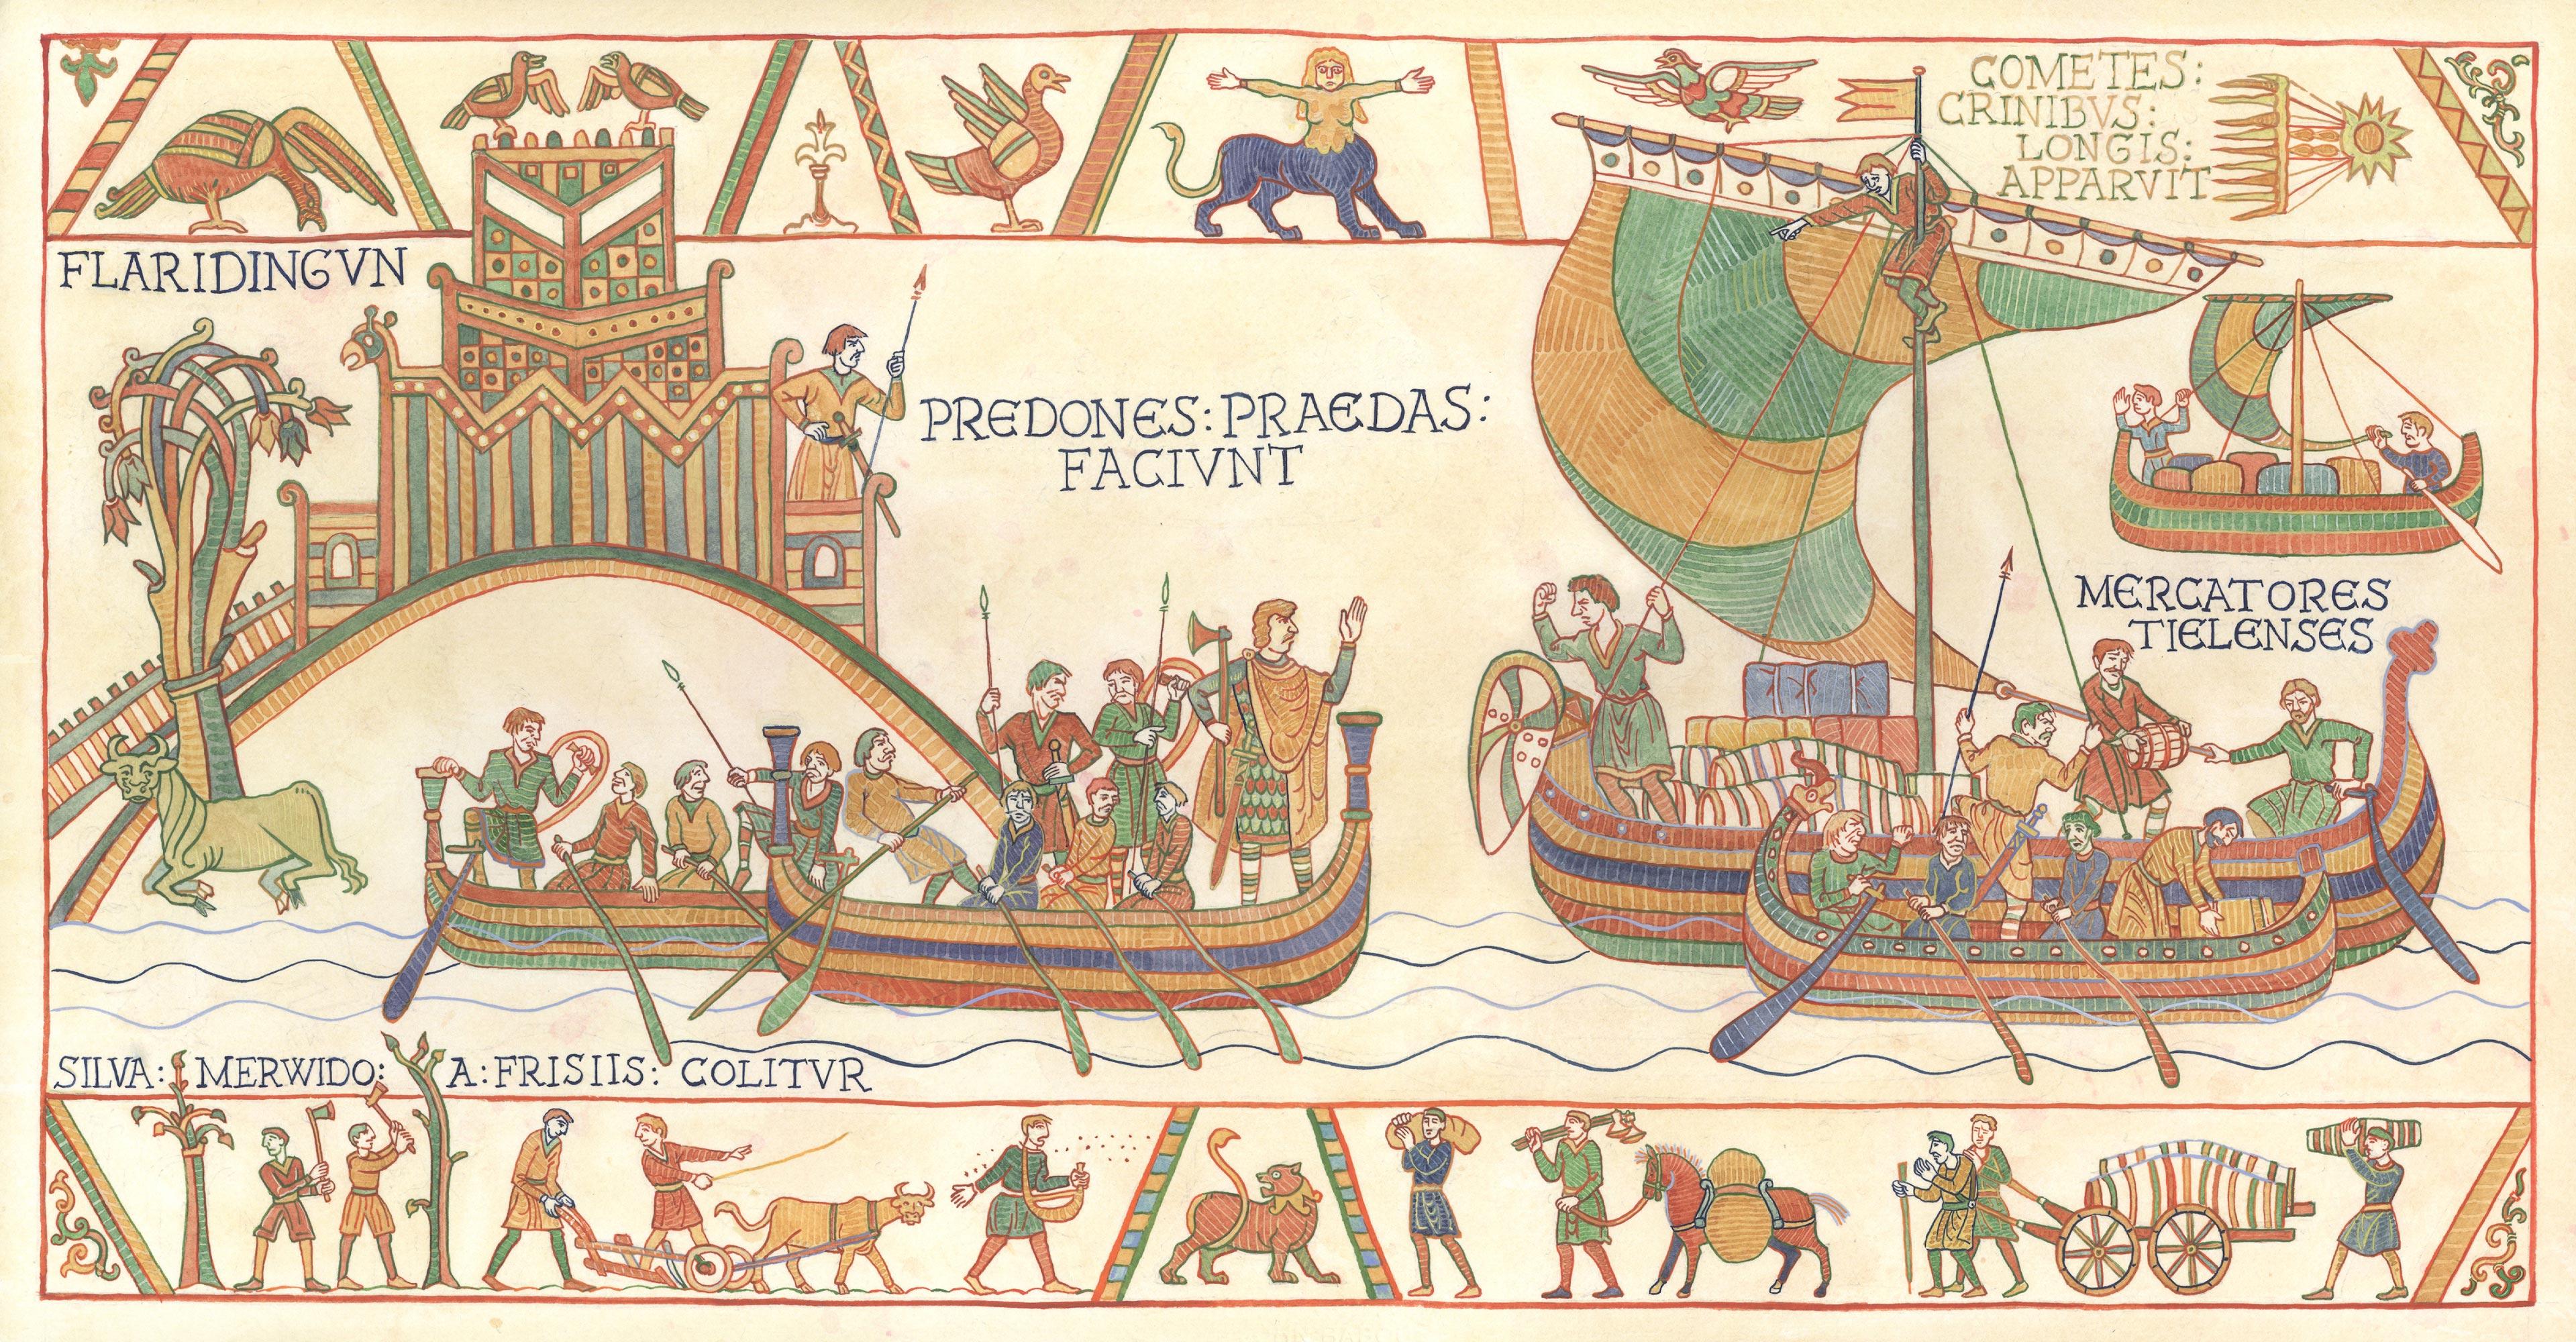 COMETES:
CRINIBVS:
LONGIS:
APPARVIT
FLARIDINGVN
PREDONES: PRAEDAS:
FACIVNT
MERCATORES
TIELENSES
SILVA: MERWIDO: A: FRISIIS: COLITVR